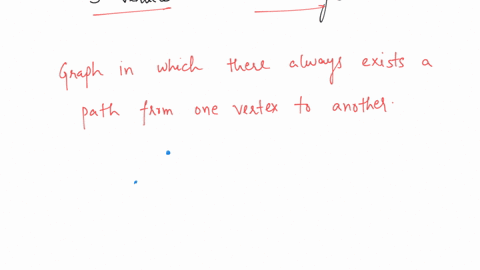 Graph in which there always exists a
path from one vertex to another.